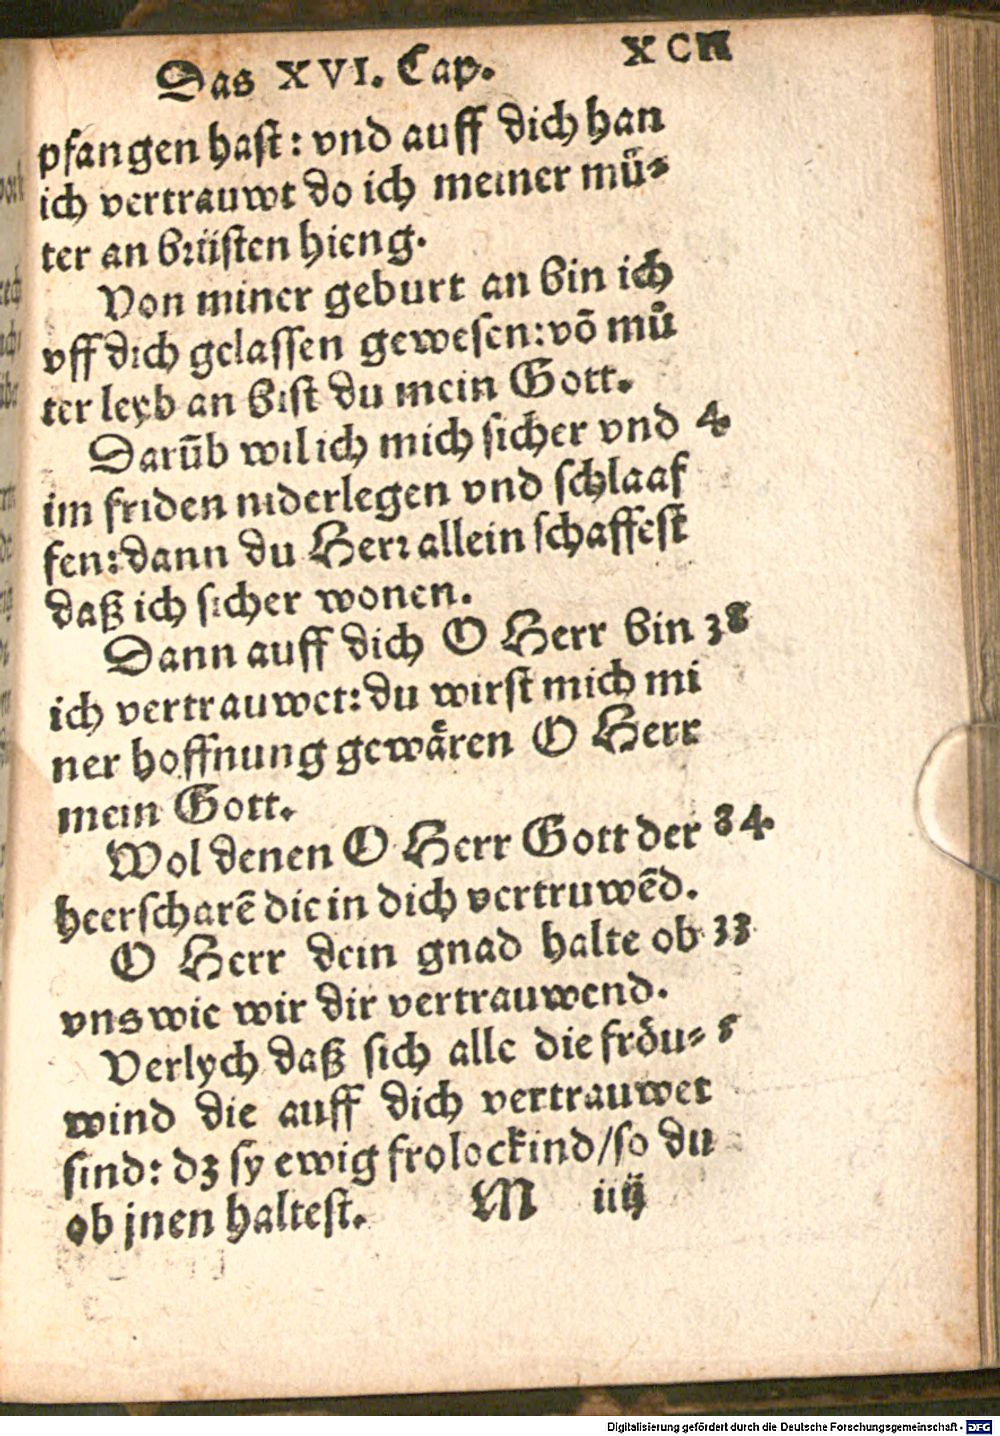 Das XVI. Cap. XCII
pfangen hast: vnd auff dich han
ich vertrauwt do ich meiner mü⸗
ter an brüsten hieng.
Von miner geburt an bin ich
vff dich gelassen gewesen: võ mů
ter leyb an bist du mein Gott.
Darũb wil ich mich sicher vnd 4.
im friden niderlegen vnd schlaaf
fen: dann du Herr allein schaffest
daß ich sicher wonen.
Dann auff dich O Herr bin 38
ich vertrauwet: du wirst mich mi
ner hoffnung gewären O Herr
mein Gott.
Wol denen O Herr Gott der 84.
heerscharẽ die in dich vertruwẽd.
O Herr dein gnad halte ob 33
vns wie wir dir vertrauwend.
Verlych daß sich alle die fröu⸗ 5
wind die auff dich vertrauwet
sind: dz sy ewig frolockind/so du
ob jnen haltest. M iiij
Digitalisierung gefördert durch die Deutsche Forschungsgemeinschaft - DFG